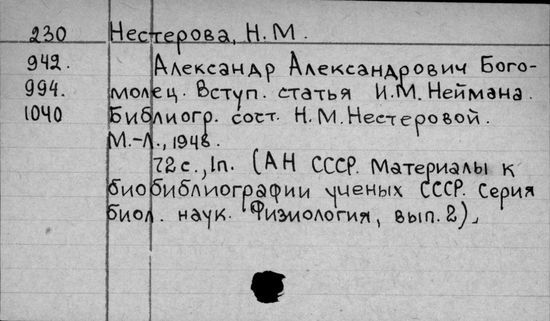 230 Нестерова, Н.М.
942. Александр Александрович Бого-
994. молец. Вступ. статья И.М.Неймана.
1040 Библиогр. сост. Н.М.Нестеровой.
М.-Л., 1948.
72с., 1п. (АН СССР. Материалы к
биобиблиографии ученых СССР. Серия
биол. наук. Физиология, вып. 2).